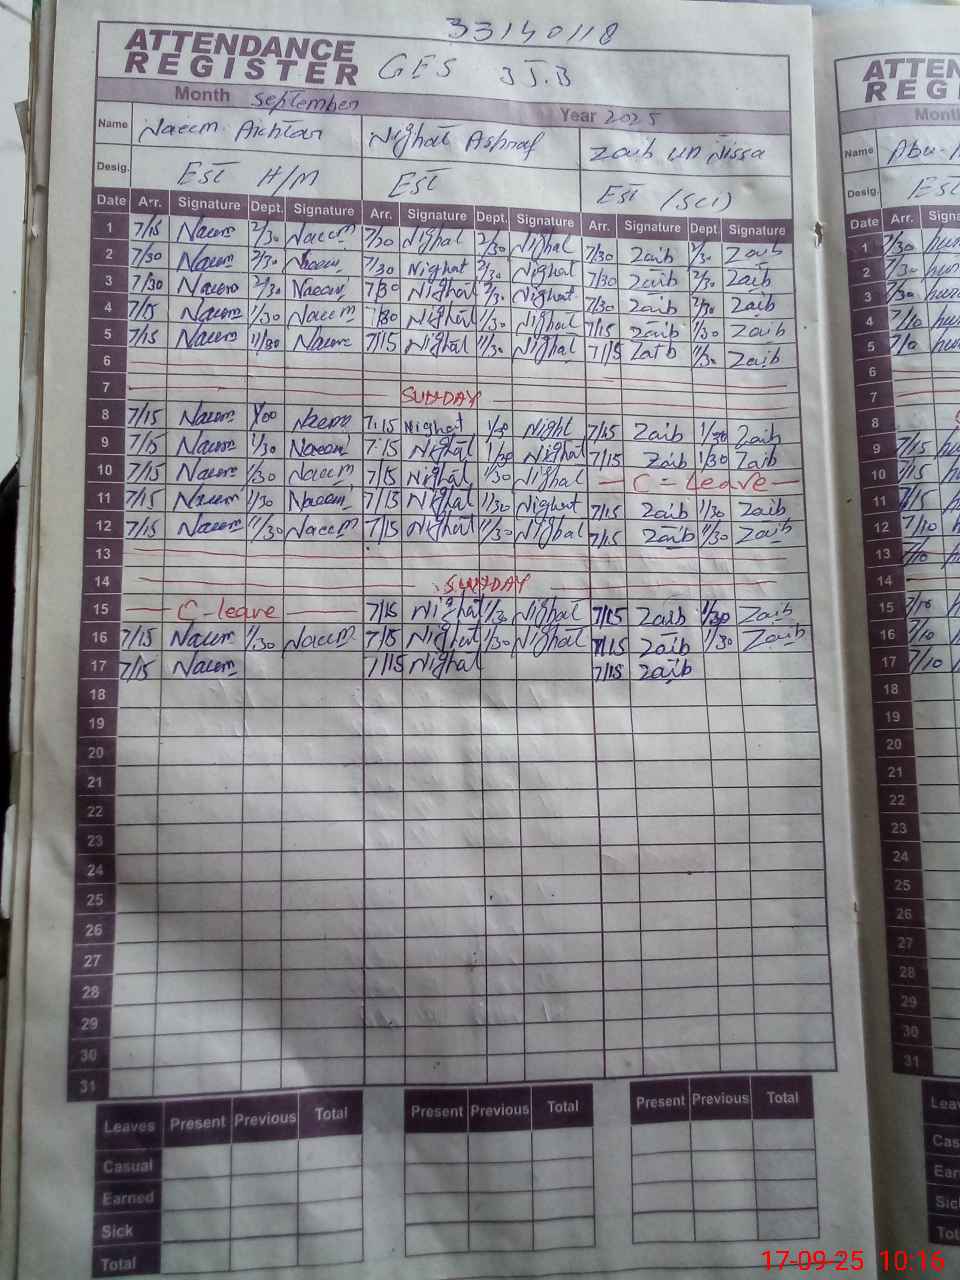 33140118
ATTENDANCE
REGISTER GES 3J.B
Month September Year 2025
Name Naeem Akhtar Nighat Ashraf Zaib un Nissa
Desig. Est H/M Est Est (Sci)
Date Arr. Signature Dept. Signature Arr. Signature Dept. Signature Arr. Signature Dept. Signature
1 7/15 Naeem 2/30 Naeem 7/30 Nighat 2/30 Nighat 7/30 Zaib 2/30 Zaib
2 7/30 Naeem 2/30 Naeem 7/30 Nighat 2/30 Nighat 7/30 Zaib 2/30 Zaib
3 7/30 Naeem 2/30 Naeem 7/30 Nighat 2/30 Nighat 7/30 Zaib 2/30 Zaib
4 7/15 Naeem 1/30 Naeem 7/30 Nighat 1/30 Nighat 7/15 Zaib 1/30 Zaib
5 7/15 Naeem 11/30 Naeem 7/15 Nighat 11/30 Nighat 7/15 Zaib 11/30 Zaib
6
7 SUNDAY
8 7/15 Naeem 1/00 Naeem 7:15 Nighat 1/30 Nighat 7/15 Zaib 1/30 Zaib
9 7/15 Naeem 1/30 Naeem 7:15 Nighat 1/30 Nighat 7/15 Zaib 1/30 Zaib
10 7/15 Naeem 1/30 Naeem 7/15 Nighat 1/30 Nighat C-Leave
11 7/15 Naeem 1/30 Naeem 7/15 Nighat 1/30 Nighat 7/15 Zaib 1/30 Zaib
12 7/15 Naeem 11/30 Naeem 7/15 Nighat 11/30 Nighat 7/15 Zaib 11/30 Zaib
13
14 SUNDAY
15 C-leave 7/15 Nighat 1/30 Nighat 7/15 Zaib 1/30 Zaib
16 7/15 Naeem 1/30 Naeem 7/15 Nighat 1/30 Nighat 7/15 Zaib 1/30 Zaib
17 7/15 Naeem 7/15 Nighat 7/15 Zaib
18
19
20
21
22
23
24
25
26
27
28
29
30
31
Leaves Present Previous Total Present Previous Total Present Previous Total
Casual
Earned
Sick
Total
ATTEN
REG
Month
Name Abu
Desig. Est
Date Arr. Signa
1 7/30
2 7/30
3 7/30
4 7/10
5 7/10
6
7
8
9 7/15
10 7/15
11 7/15
12 7/10
13 7/10
14
15 7/10
16 7/10
17 7/10
18
19
20
21
22
23
24
25
26
27
28
29
30
31
Leav
Cas
Ear
Sic
Tot
17-09-25 10:16